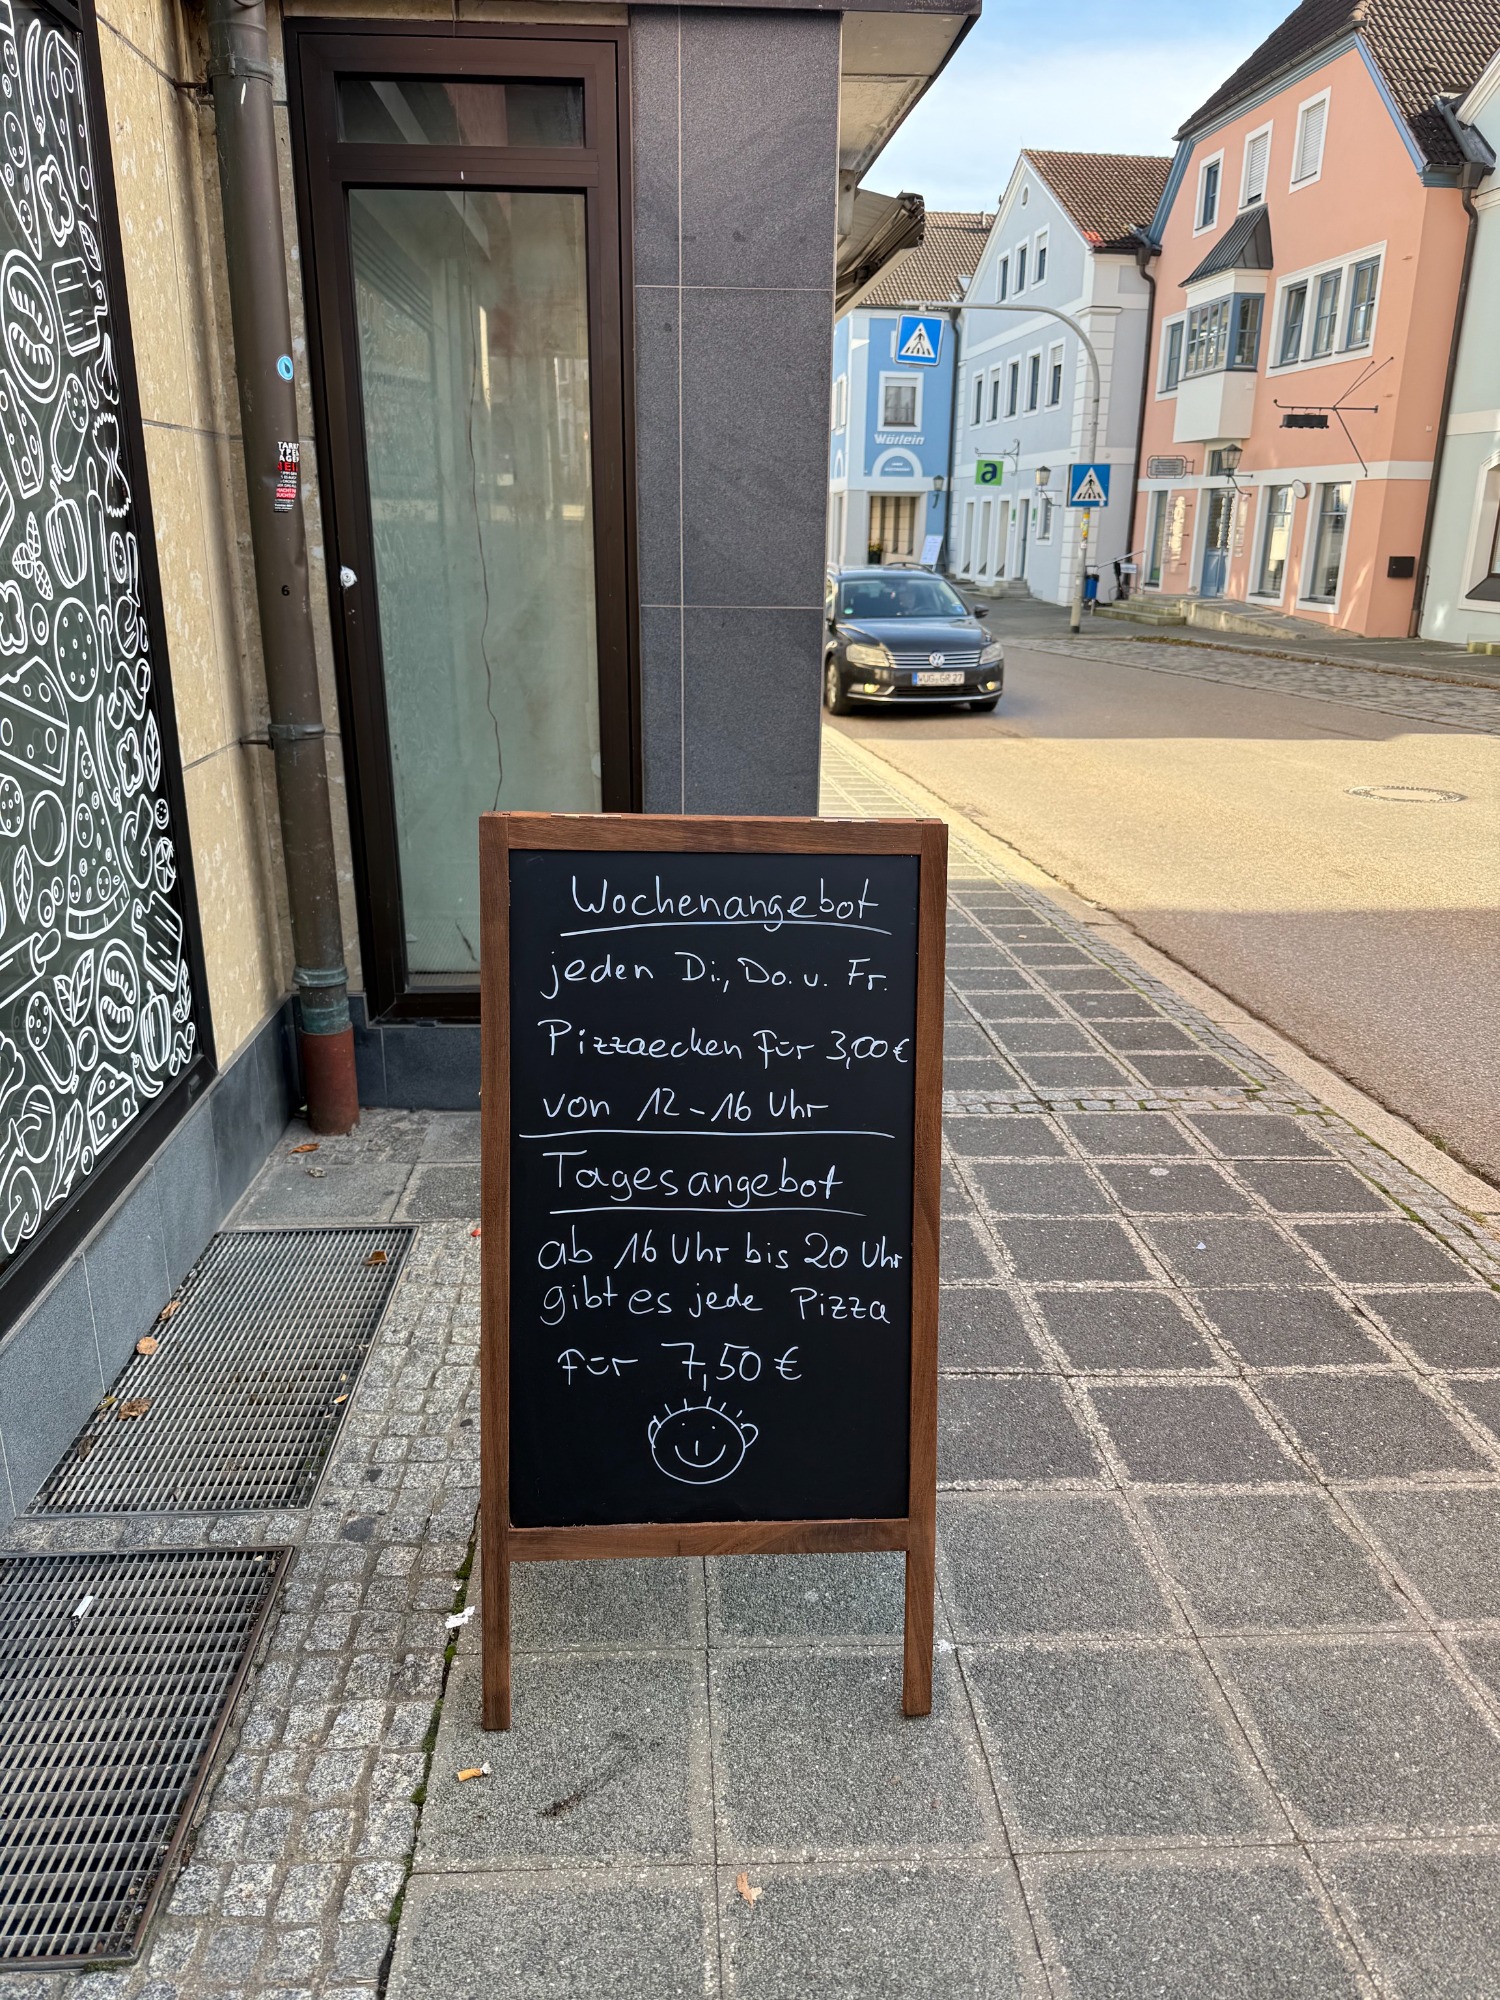 Wochenangebot
jeden Di., Do. u. Fr.
Pizzaecken für 3,00€
von 12-16 Uhr
Tagesangebot
ab 16 Uhr bis 20 Uhr
gibt es jede Pizza
für 7,50€
Wörlein
a
WUG GR 27
6